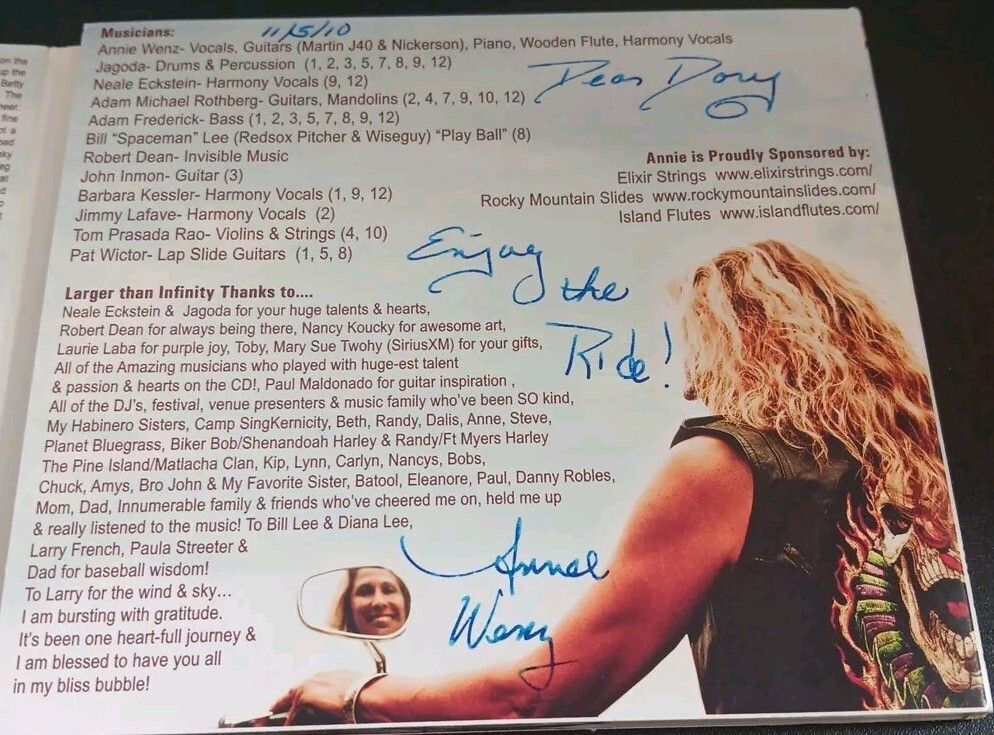 11/5/10
Musicians:
Annie Wenz- Vocals, Guitars (Martin J40 & Nickerson), Piano, Wooden Flute, Harmony Vocals
Jagoda- Drums & Percussion (1, 2, 3, 5, 7, 8, 9, 12)
Neale Eckstein- Harmony Vocals (9, 12)
Adam Michael Rothberg- Guitars, Mandolins (2, 4, 7, 9, 10, 12)
Adam Frederick- Bass (1, 2, 3, 5, 7, 8, 9, 12)
Bill “Spaceman” Lee (Redsox Pitcher & Wiseguy) “Play Ball” (8)
Robert Dean- Invisible Music
John Inmon- Guitar (3)
Barbara Kessler- Harmony Vocals (1, 9, 12)
Jimmy Lafave- Harmony Vocals (2)
Tom Prasada Rao- Violins & Strings (4, 10)
Pat Wictor- Lap Slide Guitars (1, 5, 8)
Dear Dory
Annie is Proudly Sponsored by:
Elixir Strings www.elixirstrings.com/
Rocky Mountain Slides www.rockymountainslides.com/
Island Flutes www.islandflutes.com/
Enjoy
the
Ride!
Larger than Infinity Thanks to....
Neale Eckstein & Jagoda for your huge talents & hearts,
Robert Dean for always being there, Nancy Koucky for awesome art,
Laurie Laba for purple joy, Toby, Mary Sue Twohy (SiriusXM) for your gifts,
All of the Amazing musicians who played with huge-est talent
& passion & hearts on the CD!, Paul Maldonado for guitar inspiration ,
All of the DJ's, festival, venue presenters & music family who've been SO kind,
My Habinero Sisters, Camp SingKernicity, Beth, Randy, Dalis, Anne, Steve,
Planet Bluegrass, Biker Bob/Shenandoah Harley & Randy/Ft Myers Harley
The Pine Island/Matlacha Clan, Kip, Lynn, Carlyn, Nancys, Bobs,
Chuck, Amys, Bro John & My Favorite Sister, Batool, Eleanore, Paul, Danny Robles,
Mom, Dad, Innumerable family & friends who've cheered me on, held me up
& really listened to the music! To Bill Lee & Diana Lee,
Larry French, Paula Streeter &
Dad for baseball wisdom!
To Larry for the wind & sky...
I am bursting with gratitude.
It's been one heart-full journey &
I am blessed to have you all
in my bliss bubble!
Annie
Wenz